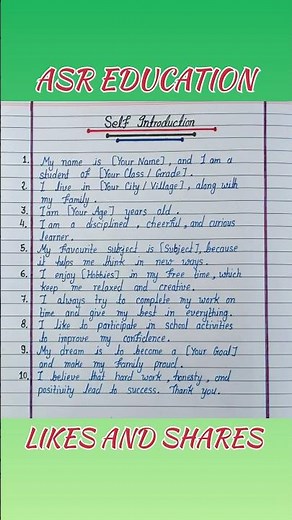 ASR EDUCATION
Self Introduction
1. My name is [Your Name], and I am a
student of [Your Class / Grade].
2. I live in [Your City / Village], along with
my family.
3. I am [Your Age] years old.
4. I am a disciplined, cheerful, and curious
learner.
5. My Favourite subject is [Subject], because
it helps me think in new ways.
6. I enjoy [Hobbies] in my free time, which
keep me relaxed and creative.
7. I always try to complete my work on
time and give my best in everything.
8. I like to participate in school activities
to improve my confidence.
9. My dream is to become a [Your Goal]
and make my family proud.
10. I believe that hard work, honesty, and
positivity lead to success. Thank you.
LIKES AND SHARES